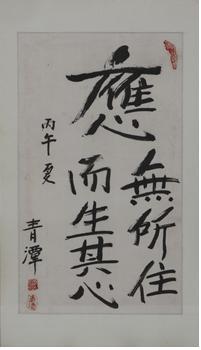 應無所住
而生其心
丙午夏
青潭